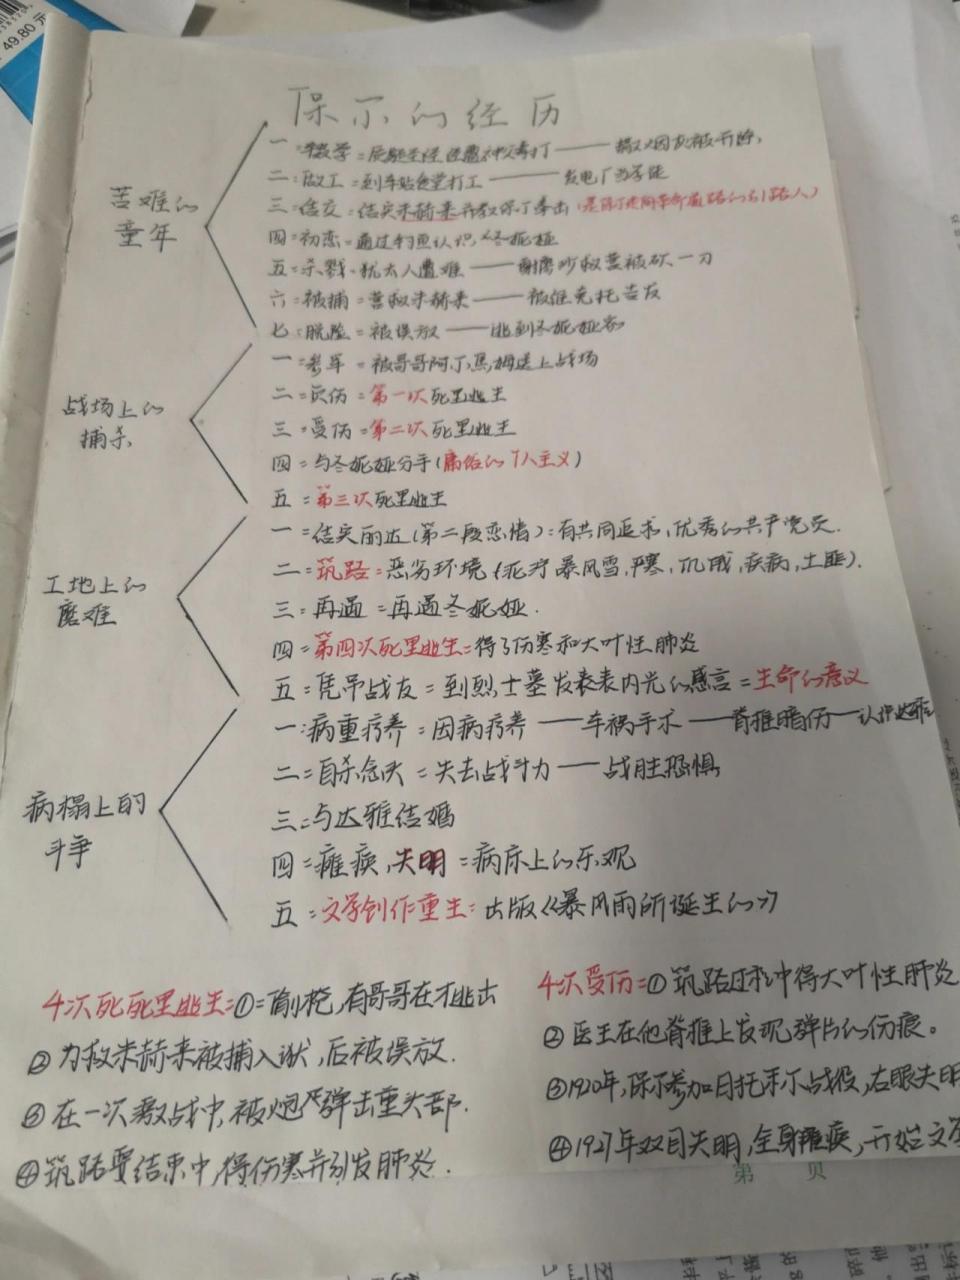 49.80元
保尔的经历
苦难的
童年
一:辍学=质疑圣经 遭神父毒打——撒烟灰被开除
二:做工=到车站食堂打工——发电厂当学徒
三:结交:结实朱赫来并教保尔拳击(是保尔走向革命道路的引路人)
四:初恋=通过钓鱼认识冬妮娅
五:杀戮、犹太人遭难——谢廖沙救苦被砍一刀
六:被捕=营救朱赫来——被维克托告发
七:脱险=被误放——逃到冬妮娅家
战场上的
捕杀
一:参军=被哥哥阿尔焦姆送上战场
二:负伤=第一次死里逃生
三:受伤=第二次死里逃生
四:与冬妮娅分手(庸俗的个人主义)
五:第三次死里逃生
工地上的
磨难
一:结实丽达(第二段恋情):有共同追求,优秀的共产党员.
二:筑路=恶劣环境(泥泞 暴风雪,严寒,饥饿,疾病,土匪).
三:再遇=再遇冬妮娅.
四=第四次死里逃生=得了伤寒和大叶性肺炎
五:凭吊战友=到烈士墓发表表内光的感言=生命的意义
病榻上的
斗争
一:病重疗养=因病疗养——车祸手术——脊椎暗伤—认识达雅
二:自杀念头=失去战斗力——战胜恐惧
三:与达雅结婚
四=瘫痪,失明=病床上的乐观
五:文学创作重生:出版《暴风雨所诞生的》
4次死死里逃生=①=偷枪,有哥哥在才逃出
②为救朱赫来被捕入狱,后被误放.
③在一次激战中,被炮弹击重头部.
④筑路要结束中,得伤寒并引发肺炎.
4次受伤=①筑路还中得大叶性肺炎
②医生在他脊椎上发现弹片的伤痕。
③1920年,保尔参加日托米尔战役,右眼失明
④1927年双目失明,全身瘫痪,开始文学
第 页